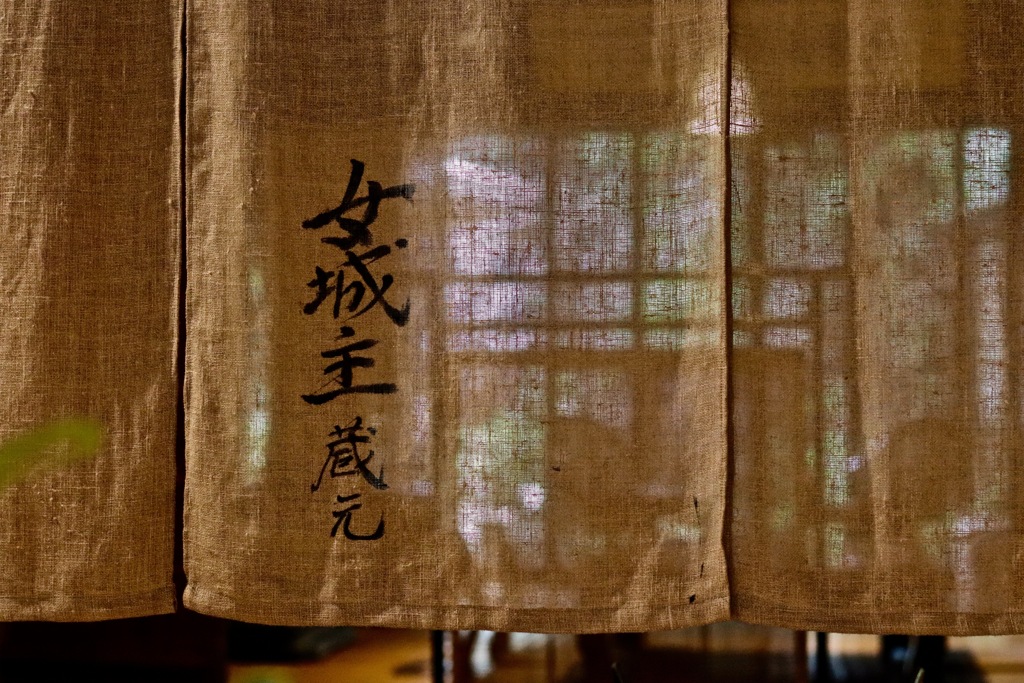 女城主蔵元